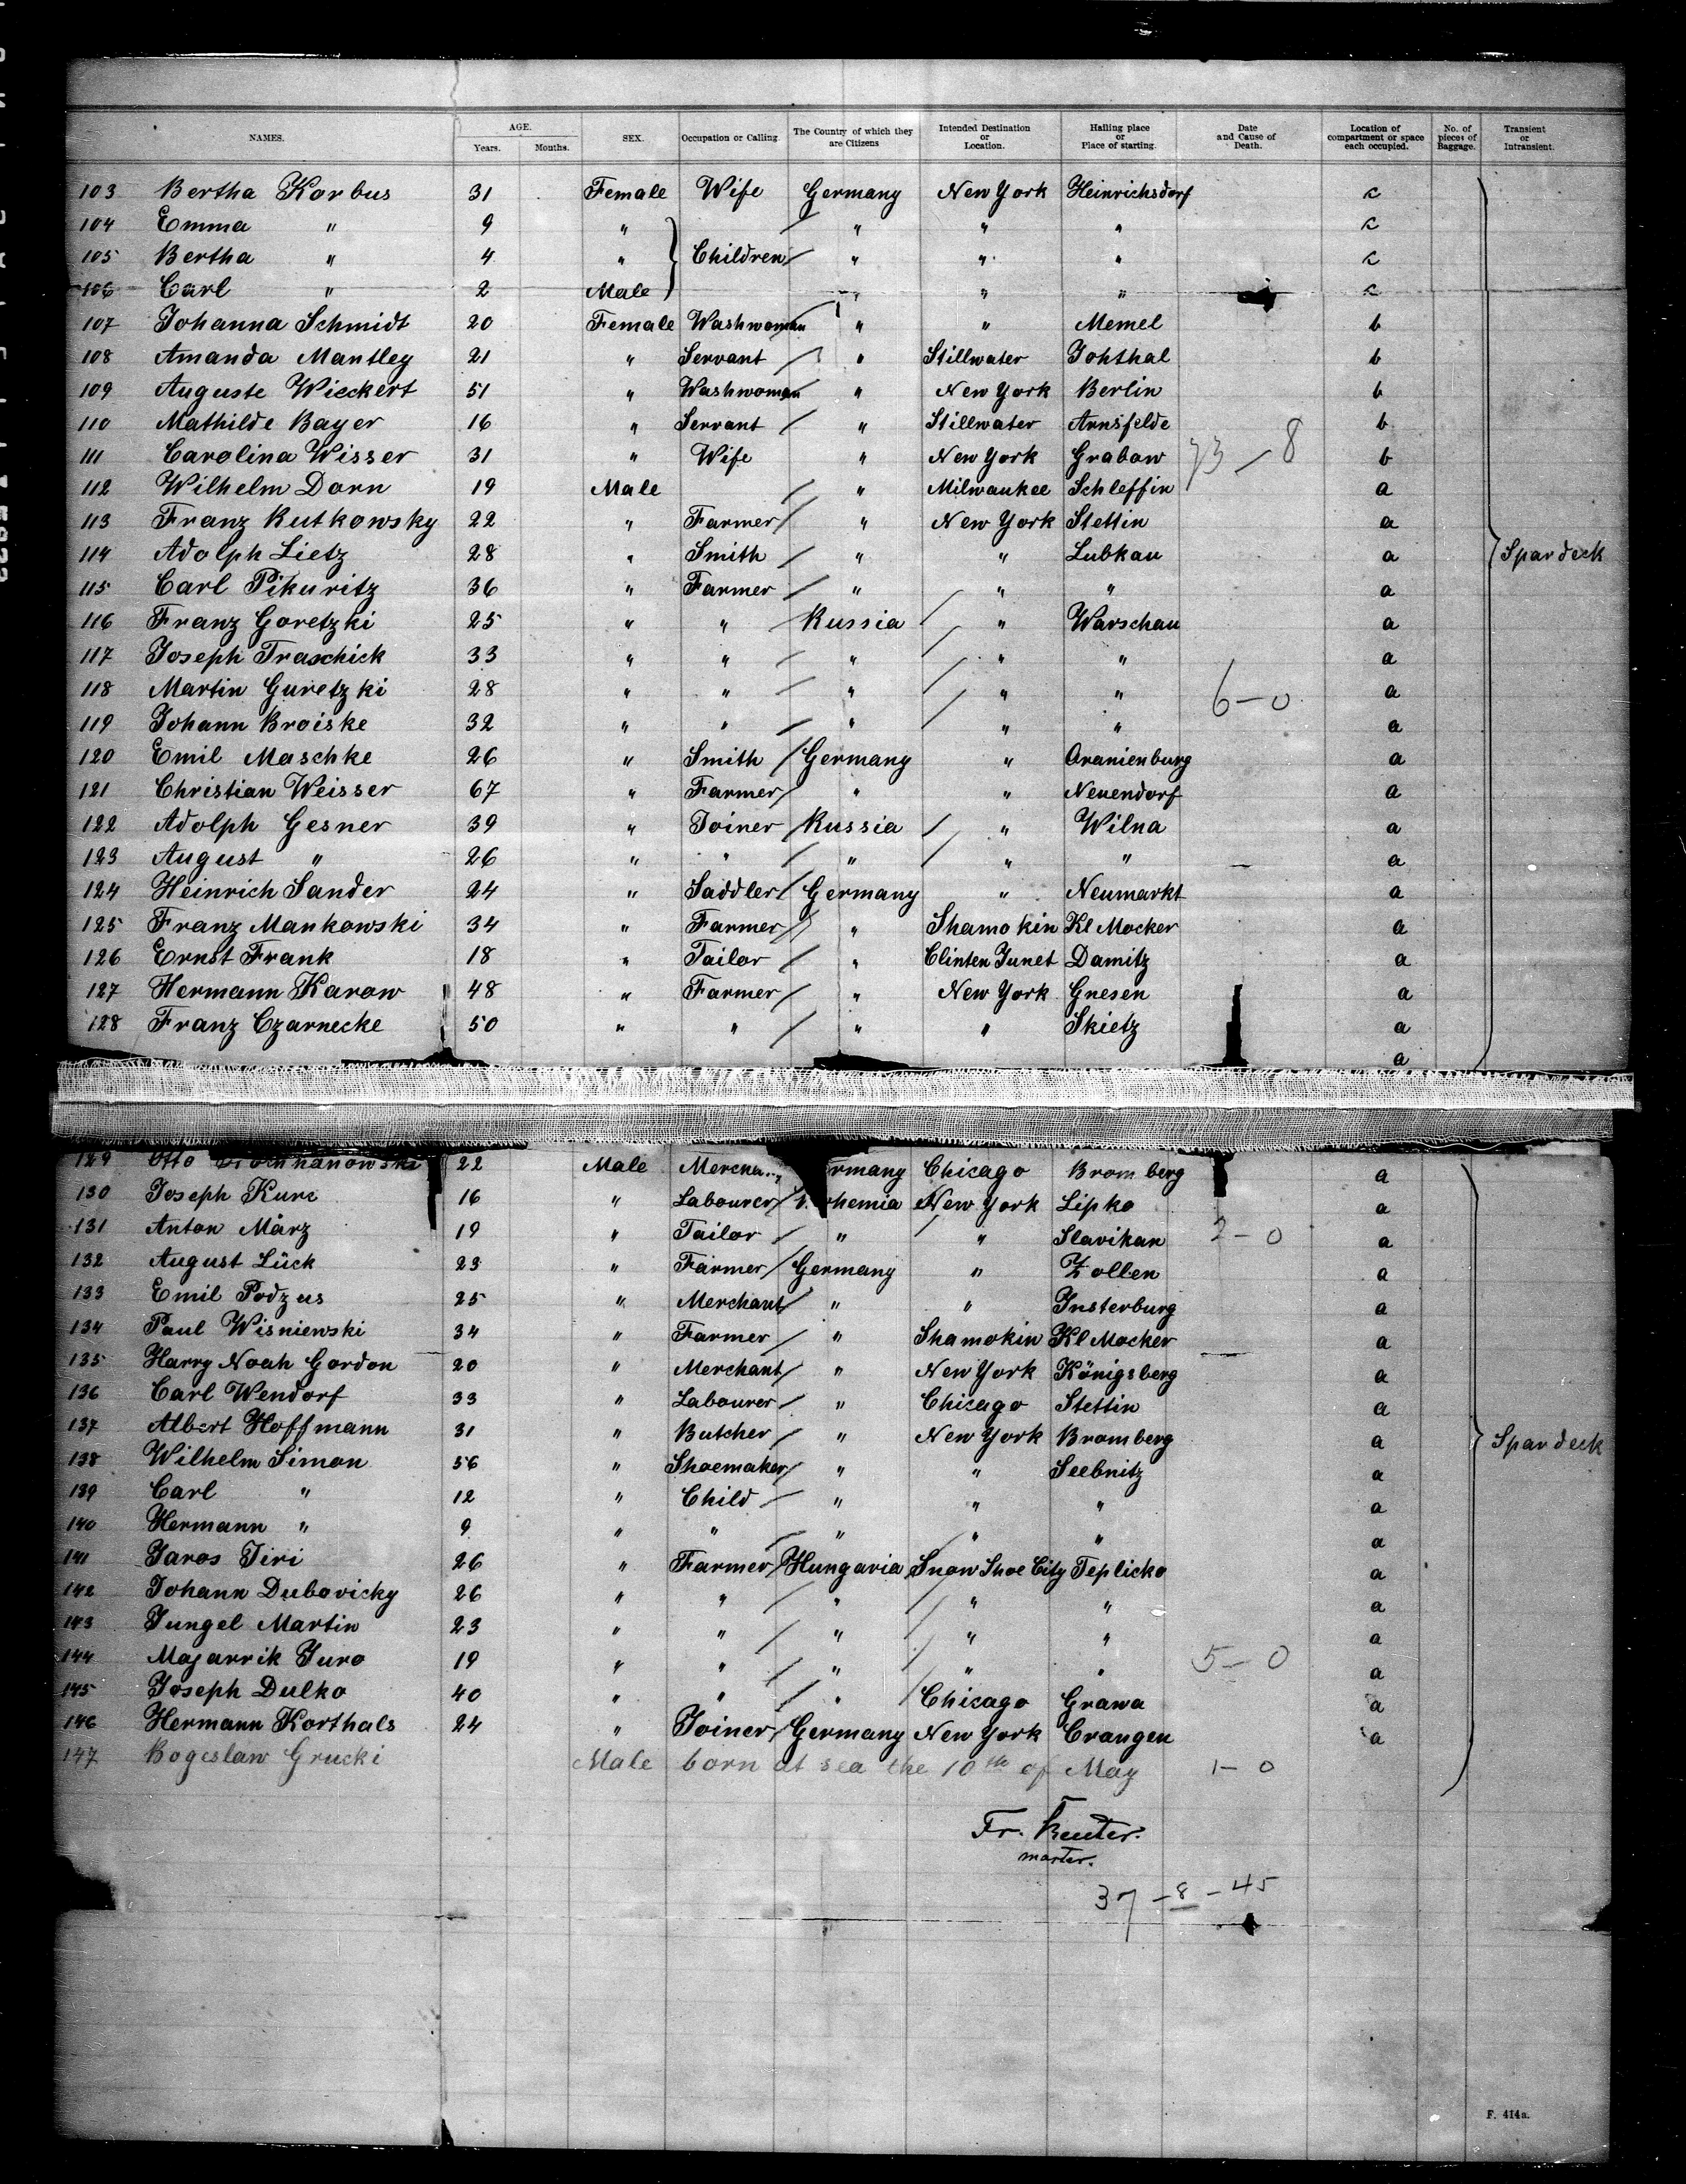 NAMES. AGE. Years. Months. SEX. Occupation or Calling. The Country of which they are Citizens Intended Destination or Location. Hailing place or Place of starting. Date and Cause of Death. Location of compartment or space each occupied. No. of pieces of Baggage. Transient or Intransient.
103 Bertha Korbus 31 Female Wife Germany New York Heinrichsdorf c
104 Emma " 9 " " " " c
105 Bertha " 4 " Children " " " c
106 Carl " 2 Male " " " c
107 Johanna Schmidt 20 Female Washwoman " " Memel b
108 Amanda Mantley 21 " Servant " Stillwater Johthal b
109 Auguste Wieckert 51 " Washwoman " New York Berlin b
110 Mathilde Bayer 16 " Servant " Stillwater Arnsfelde b
111 Carolina Wisser 31 " Wife " New York Grabow 23 - 8 b
112 Wilhelm Dorn 19 Male " Milwaukee Schleffin a
113 Franz Rutkowsky 22 " Farmer " New York Stettin a
114 Adolph Lietz 28 " Smith " " Lubkau a Spardeck
115 Carl Pikuritz 36 " Farmer " " " a
116 Franz Goretzki 25 " " Russia " Warschau a
117 Joseph Traschick 33 " " " " " a
118 Martin Guretzki 28 " " " " " 6-0 a
119 Johann Broiske 32 " " " " " a
120 Emil Maschke 26 " Smith Germany " Oranienburg a
121 Christian Weisser 67 " Farmer " " Neuendorf a
122 Adolph Gesner 39 " Joiner Russia " Wilna a
123 August " 26 " " " " " a
124 Heinrich Sander 24 " Saddler Germany " Neumarkt a
125 Franz Mankowski 34 " Farmer " Shamokin Kl Mocker a
126 Ernst Frank 18 " Tailor " Clinten Junct Damitz a
127 Hermann Karow 48 " Farmer " New York Gnesen a
128 Franz Czarnecke 50 " " " " Skietz a
a
129 Otto 22 Male Germany Chicago Bromberg a
130 Joseph Kurc 16 " Labourer Bohemia New York Lipko a
131 Anton März 19 " Tailor " " Slavikan 2-0 a
132 August Lück 23 " Farmer Germany " Zollen a
133 Emil Podzus 25 " Merchant " " Insterburg a
134 Paul Wisniewski 34 " Farmer " Shamokin Kl Mocker a
135 Harry Noah Gordon 20 " Merchant " New York Königsberg a
136 Carl Wendorf 33 " Labourer " Chicago Stettin a
137 Albert Hoffmann 31 " Butcher " New York Bromberg a Spardeck
138 Wilhelm Simon 56 " Shoemaker " " Seebnitz a
139 Carl " 12 " Child " " " a
140 Hermann " 9 " " " " " a
141 Jaros Jiri 26 " Farmer Hungaria Snow Shoe City Teplicko a
142 Johann Dubovicky 26 " " " " " a
143 Jungel Martin 23 " " " " " a
144 Majarrik Juro 19 " " " " " 5-0 a
145 Joseph Dulko 40 " " " Chicago Grawa a
146 Hermann Korthals 24 " Joiner Germany New York Crangen a
147 Bogeslaw Grucki Male born at sea the 10th of May 1-0
Fr. Reuter.
master.
37 - 8 - 45
F. 414a.